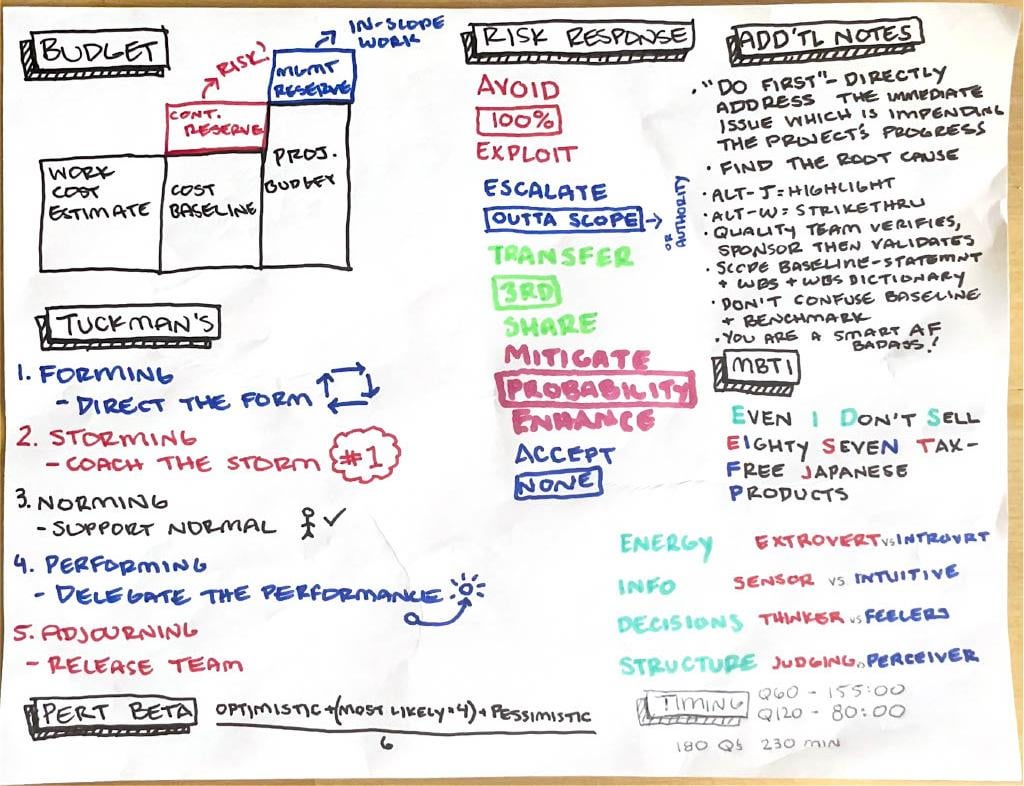 BUDGET
IN-SCOPE
WORK
RISK!
MGMT
RESERVE
CONT.
RESERVE
WORK
COST
ESTIMATE
COST
BASELINE
PROJ.
BUDGET
TUCKMAN'S
1. FORMING
- DIRECT THE FORM
2. STORMING
- COACH THE STORM #1
3. NORMING
- SUPPORT NORMAL
4. PERFORMING
- DELEGATE THE PERFORMANCE
5. ADJOURNING
- RELEASE TEAM
PERT BETA
OPTIMISTIC + (MOST LIKELY * 4) + PESSIMISTIC
6
RISK RESPONSE
AVOID
100%
EXPLOIT
ESCALATE
OUTTA SCOPE
OR
AUTHORITY
TRANSFER
3RD
SHARE
MITIGATE
PROBABILITY
ENHANCE
ACCEPT
NONE
ADD'TL NOTES
• "DO FIRST" - DIRECTLY
ADDRESS THE IMMEDIATE
ISSUE WHICH IS IMPENDING
THE PROJECT'S PROGRESS
• FIND THE ROOT CAUSE
• ALT-J = HIGHLIGHT
• ALT-W = STRIKETHRU
• QUALITY TEAM VERIFIES,
SPONSOR THEN VALIDATES
• SCOPE BASELINE-STATEMNT
+ WBS + WBS DICTIONARY
• DON'T CONFUSE BASELINE
+ BENCHMARK
• YOU ARE A SMART AF
BADASS!
MBTI
EVEN I DON'T SELL
EIGHTY SEVEN TAX-
FREE JAPANESE
PRODUCTS
ENERGY EXTROVERT vs INTROVRT
INFO SENSOR vs INTUITIVE
DECISIONS THINKER vs FEELERS
STRUCTURE JUDGING vs PERCEIVER
TIMING
Q60 - 155:00
Q120 - 80:00
180 Qs 230 MIN